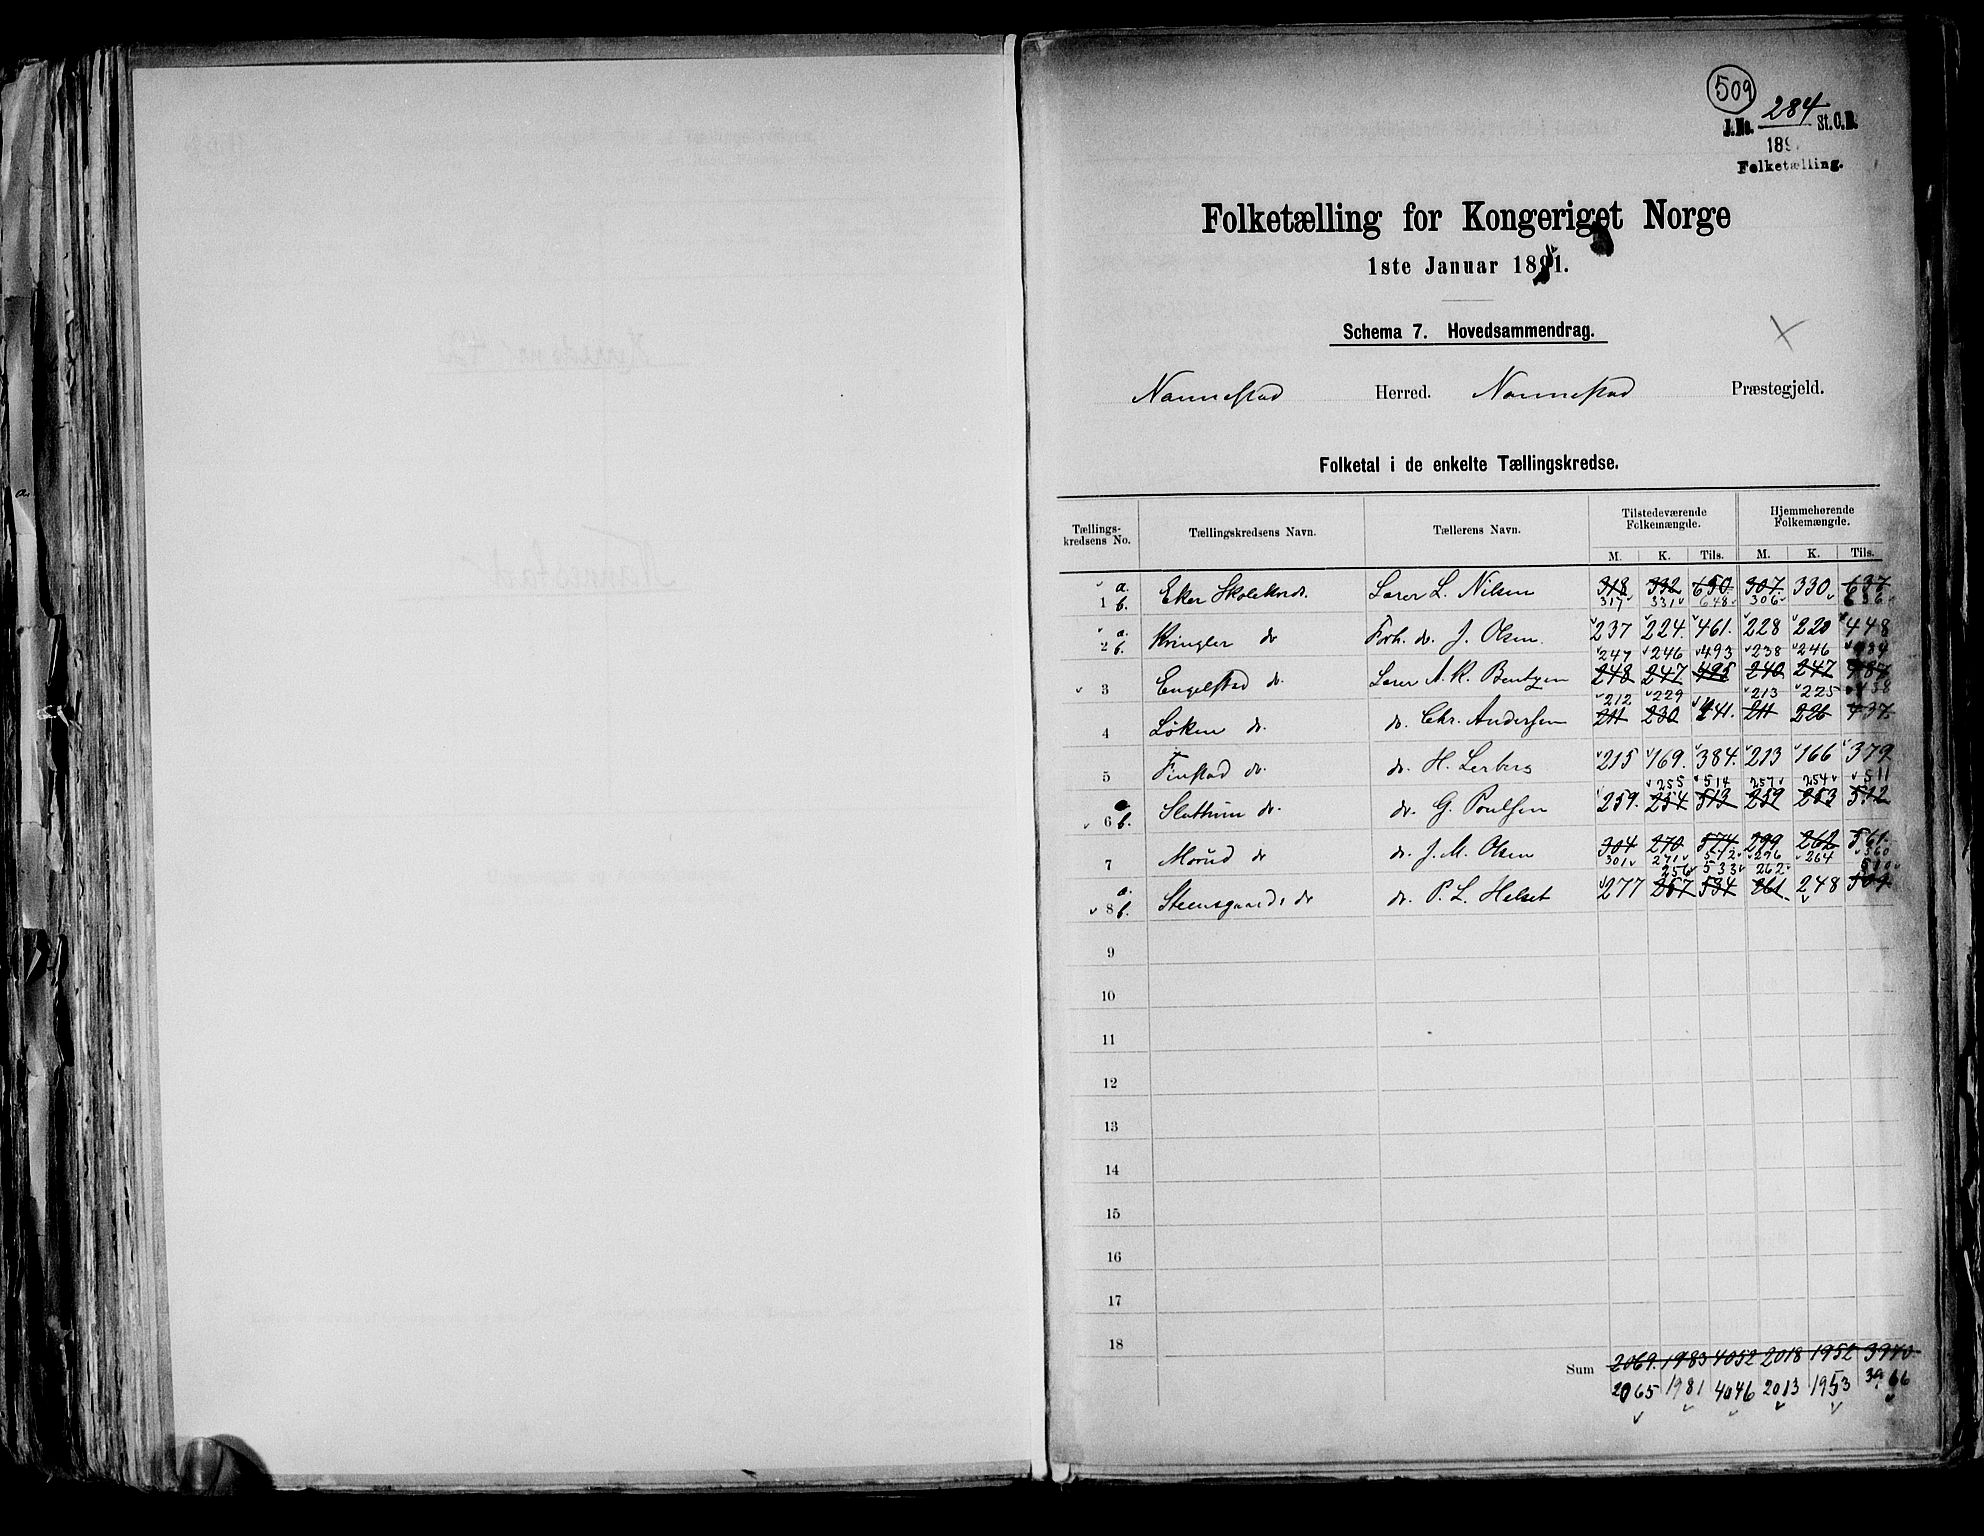 509
J.No. 284 St.C.B.
189
Folketælling.
Folketælling for Kongeriget Norge
1ste Januar 1891.
Schema 7. Hovedsammendrag.
Nannestad Herred. Nannestad Præstegjeld.
Folketal i de enkelte Tællingskredse.
Tællings-kredsens No. Tællingskredsens Navn. Tællerens Navn. Tilstedeværende Folkemængde. Hjemmehørende Folkemængde.
M. K. Tils. M. K. Tils.
1 a. b. Eker Skolekreds. Lærer L. Nilsen 318 332 650. 307. 330 637
317 331 648 306 636
2 a. b. Kringler do Forh. do. J. Olsen. 237 224. 461. 228 220 448
247 246 493 238 246 484
3 Engelstad do. Lærer A. K. Bentzen 248 247 495 240 247 487
212 229 213 225 438
4 Løken do. do. Chr. Andersen 211 230 441. 211 226 437.
5 Finstad do. do. H. Lerberg 215 169. 384. 213 166 379
255 514 257 254 511
6 a b. Slattum do. do. G. Poulsen 259. 254 513 259 253 512
7 Morud do do. J. M. Olsen 304 270 574 299 262 561.
301 271 572 296 264 560
256 533 262 510
8 a. b. Steensgaards do do. P. L. Helset 277 257 534 261 248 509
9
10
11
12
13
14
15
16
17
18
Sum 2069. 1983 4052 2018 1952 3970
2065 1981 4046 2013 1953 3966